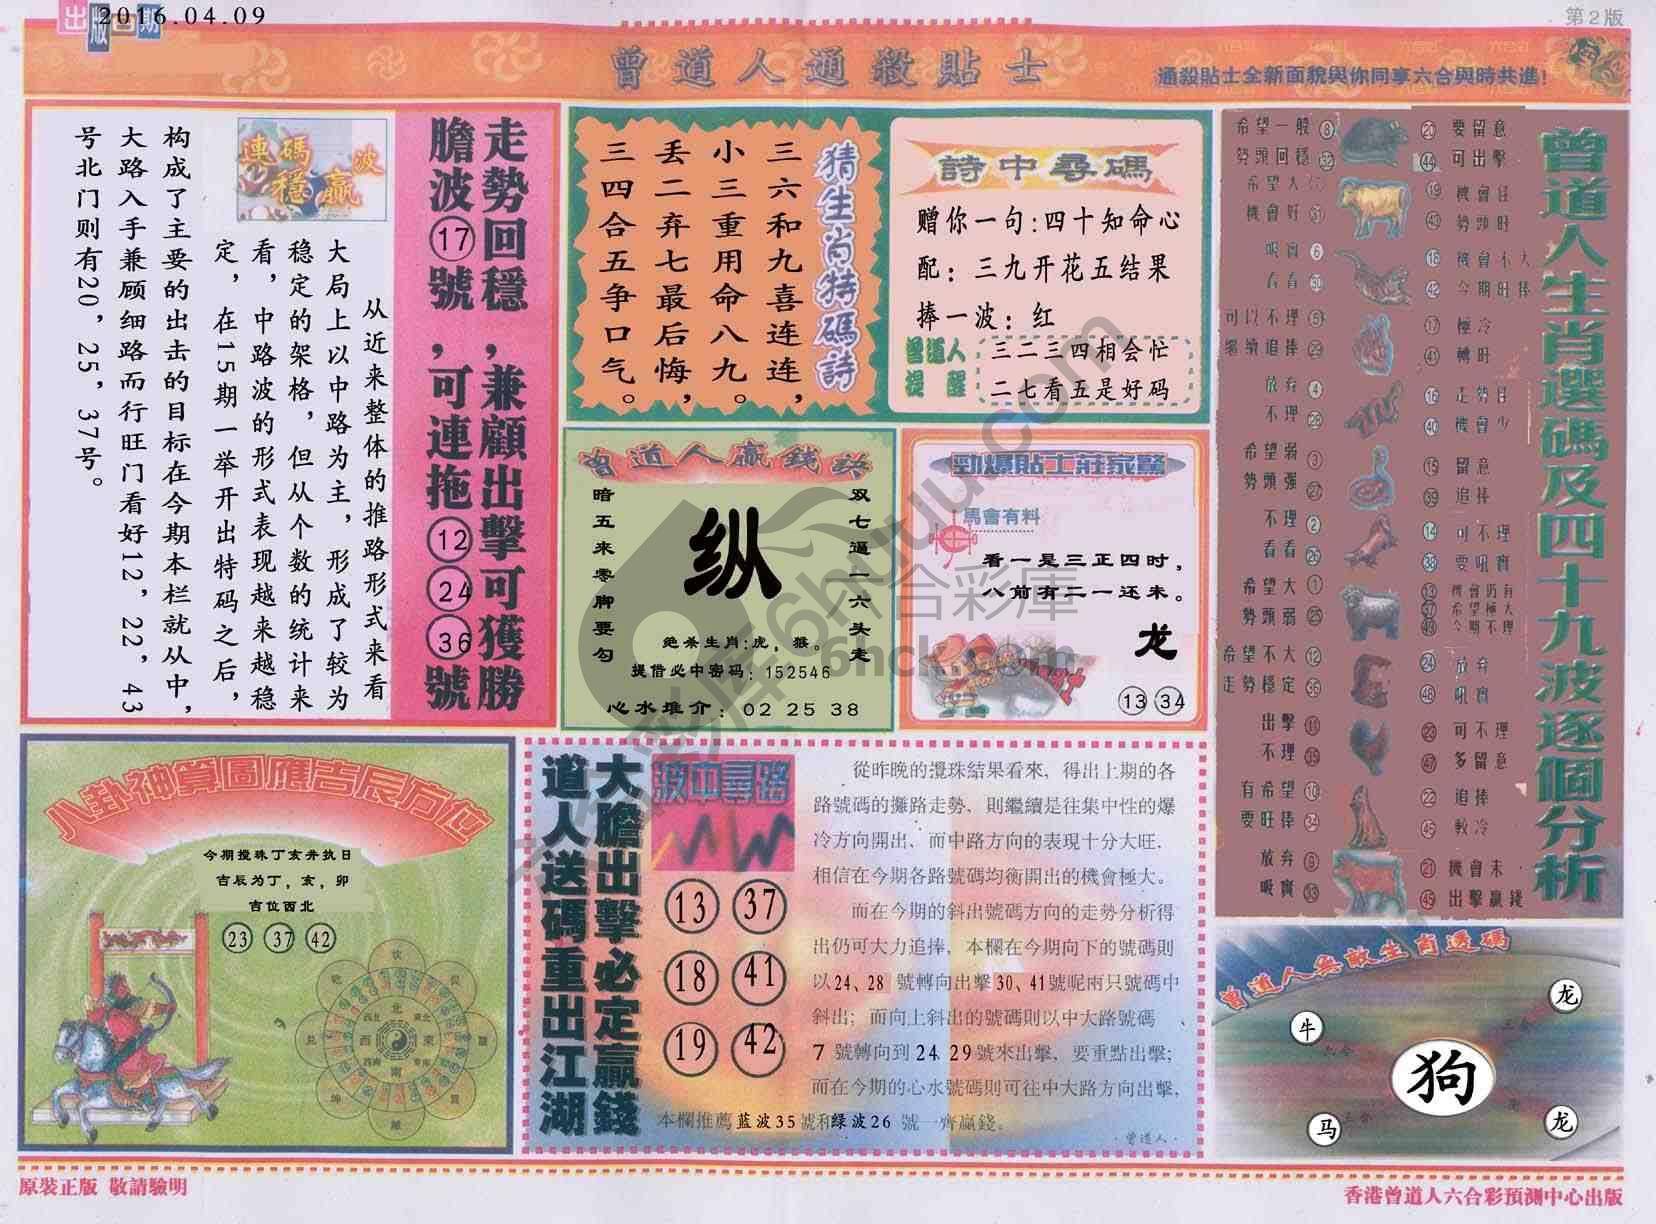 出版日期
2016.04.09
第2版
曾道人通殺貼士
通殺貼士全新面貌與你同享六合與時共進!
走勢回穩,兼顧出擊可獲勝
膽波⑰號,可連拖⑫㉔㊱號
連碼穩贏波
从近来整体的推路形式来看
大局上以中路为主,形成了较为
稳定的架格,但从个数的统计来
看,中路波的形式表现越来越稳
定,在15期一举开出特码之后,
构成了主要的出击的目标在今期本栏就从中,
大路入手兼顾细路而行旺门看好12,22,43
号北门则有20,25,37号。
猜生肖特碼詩
三六和九喜连连,
小三重用命八九。
丢二弃七最后悔,
三四合五争口气。
詩中尋碼
赠你一句:四十知命心
配:三九开花五结果
捧一波:红
曾道人提醒
三二三四相会忙
二七看五是好码
曾道人贏錢訣
双七逼一六头走
暗五来零脚要勾
纵
绝杀生肖:虎,猴。
提借必中密码:152546
心水推介:02 25 38
勁爆貼士莊家驚
馬會有料
看一是三正四时,
八前有二一还未。
龙
13 34
曾道人生肖選碼及四十九波逐個分析
希望一般 ⑧
⑳ 要留意
勢頭回穩 ㉜
㊹ 可出擊
希望大 ⑦
⑲ 機會狂
機會好 ㉛
㊸ 勢頭旺
吸實 ⑥
⑱ 機會不大
看看 ㉚
㊷ 今期旺捧
可以不理 ⑤
⑰ 極冷
繼續追捧 ㉙
㊶ 轉旺
放弃 ④
⑯ 走勢狂
不理 ㉘
㊵ 機會少
希望弱 ③
⑮ 留意
勢頭强 ㉗
㊴ 追捧
不理 ②
⑭ 可不理
看看 ㉖
㊳ 要吼實
希望大 ①
⑬ 機會仍有
㊲ 希望極大
勢頭弱 ㉕
㊾ 今期不理
希望不大 ⑫
㉔ 放弃
走勢穩定 ㊱
㊽ 吼實
出擊 ⑪
㉓ 可不理
不理 ㉟
㊼ 多留意
有希望 ⑩
㉒ 追捧
要旺捧 ㉞
軟冷
放弃 ⑨
㉑ 機會未
吸實 ㉝
㊺ 出擊贏錢
八卦神算圖應吉辰方位
今期搅珠丁亥并执日
吉辰为丁,亥,卯
吉位西北
23 37 42
大膽出擊必定贏錢
道人送碼重出江湖
波中尋路
13 37
18 41
19 42
從昨晚的攪珠結果看來,得出上期的各
路號碼的攤路走勢、則繼續是往集中性的爆
冷方向開出、而中路方向的表現十分大旺.
相信在今期各路號碼均衡開出的機會極大。
而在今期的斜出號碼方向的走勢分析得
出仍可大力追捧,本欄在今期向下的號碼則
以24、28 號轉向出擊30、41號呢兩只號碼中
斜出;而向上斜出的號碼則以中大路號碼、
7 號轉向到24.29號來出擊,要重點出擊;
而在今期的心水號碼則可往中大路方向出擊,
本欄推薦 蓝波35號和绿波26 號一齊贏錢。
·曾道人·
曾道人無敵生肖選碼
龙
牛
狗
马
龙
原裝正版 敬請驗明
香港曾道人六合彩預測中心出版
六合彩庫
6hck.com